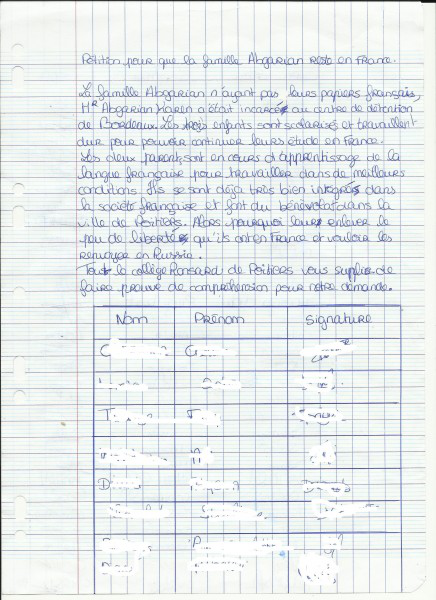 Pétition pour que la famille Abgarian reste en France.
La famille Abgarian n'ayant pas leurs papiers français,
Mr Abgarian Karen a était incarcéré au centre de détention
de Bordeaux. Les trois enfants sont scolarisés et travaillent
dur pour pouvoir continuer leurs étude en France.
Les deux parents sont en cours d'apprentissage de la
langue française pour travailler dans de meilleurs
conditions. Ils se sont déjà très bien intégrés dans
la société française et font du bénévolat dans la
ville de Poitiers. Alors pourquoi leurs enlever le
peu de libertés qu'ils ont en France et vouloir les
renvoyer en Russie.
Tout le collège Ronsard de Poitiers vous supplie de
faire preuve de compréhension pour notre demande.
Nom Prénom Signature